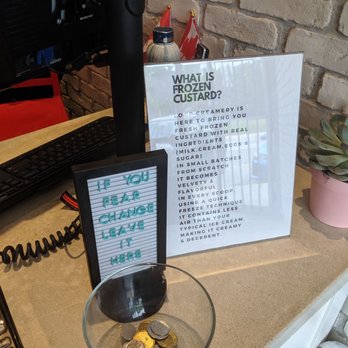 WHAT IS
FROZEN
CUSTARD?
CREAMERY IS
HERE TO BRING YOU
FRESH FROZEN
CUSTARD WITH REAL
INGREDIENTS
(MILK, CREAM, EGGS &
SUGAR)
IN SMALL BATCHES
FROM SCRATCH
IT BECOMES
VELVETY &
FLAVORFUL
IN EVERY SCOOP.
USING A QUICK
FREEZE TECHNIQUE
IT CONTAINS LESS
AIR THAN YOUR
TYPICAL ICE CREAM,
MAKING IT CREAMY
& DECEDENT.
IF YOU
FEAR
CHANGE
LEAVE
IT
HERE